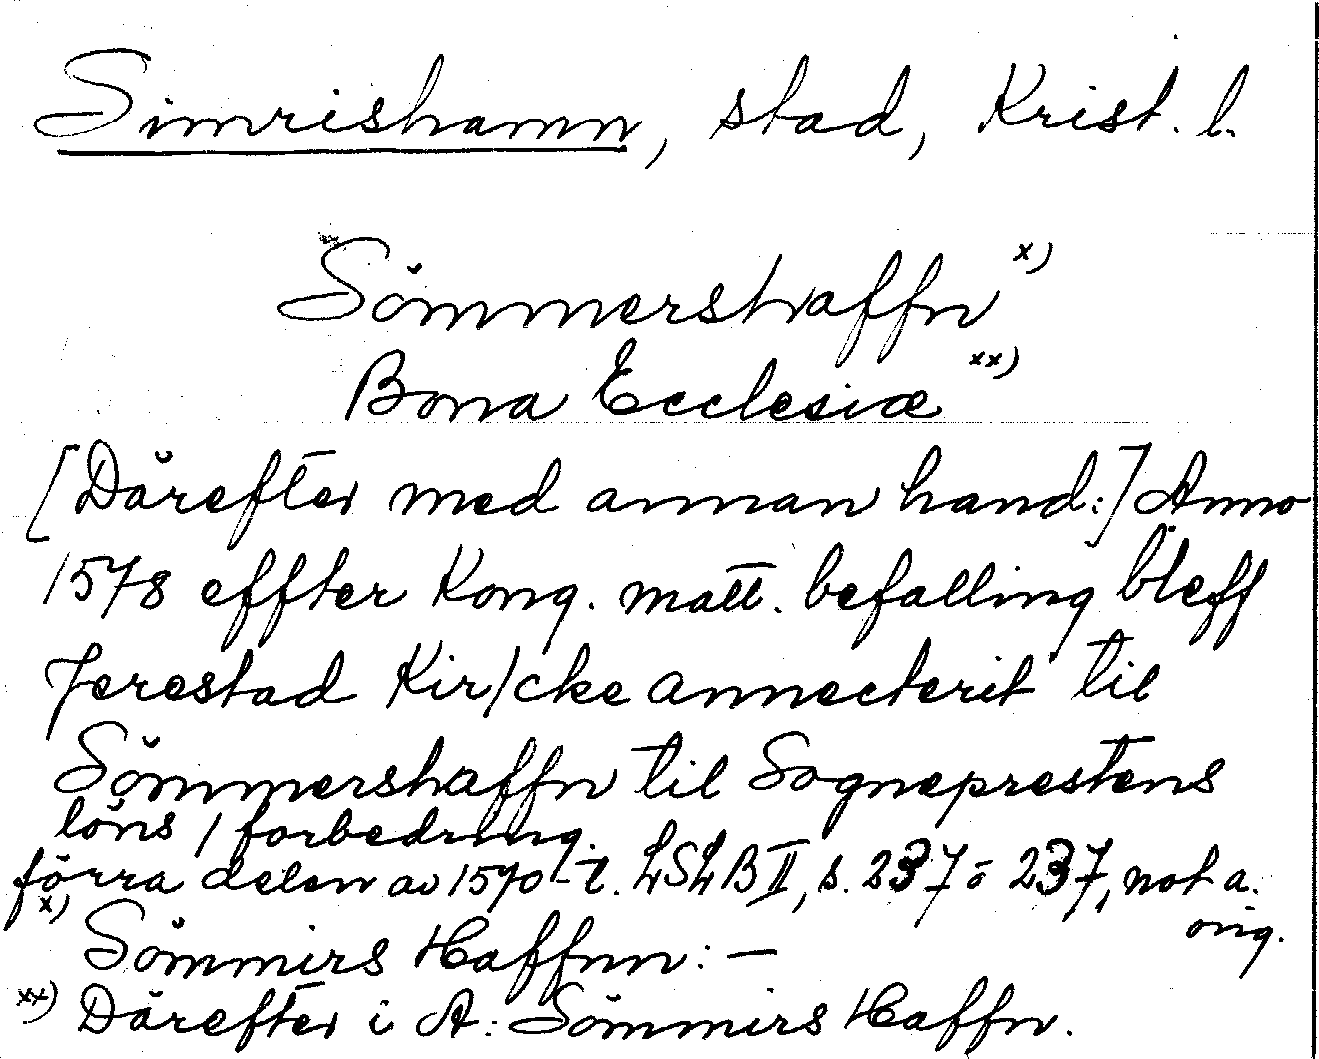 Simrishamn, stad, Krist. l.
Sömmershaffn x)
Bona Ecclesiæ xx)
[Därefter med annan hand:] Anno
1578 effter Kong. matt. befalling bleff
Jerestad Kir/cke annecterit til
Sömmershaffn til Sogneprestens
löns/forbedring.
förra delen av 1570-t. LSLB II, s. 237 o 237, not a.
orig.
x) Sömmirs Haffnn: –
xx) Därefter i A: Sömmirs Haffn.